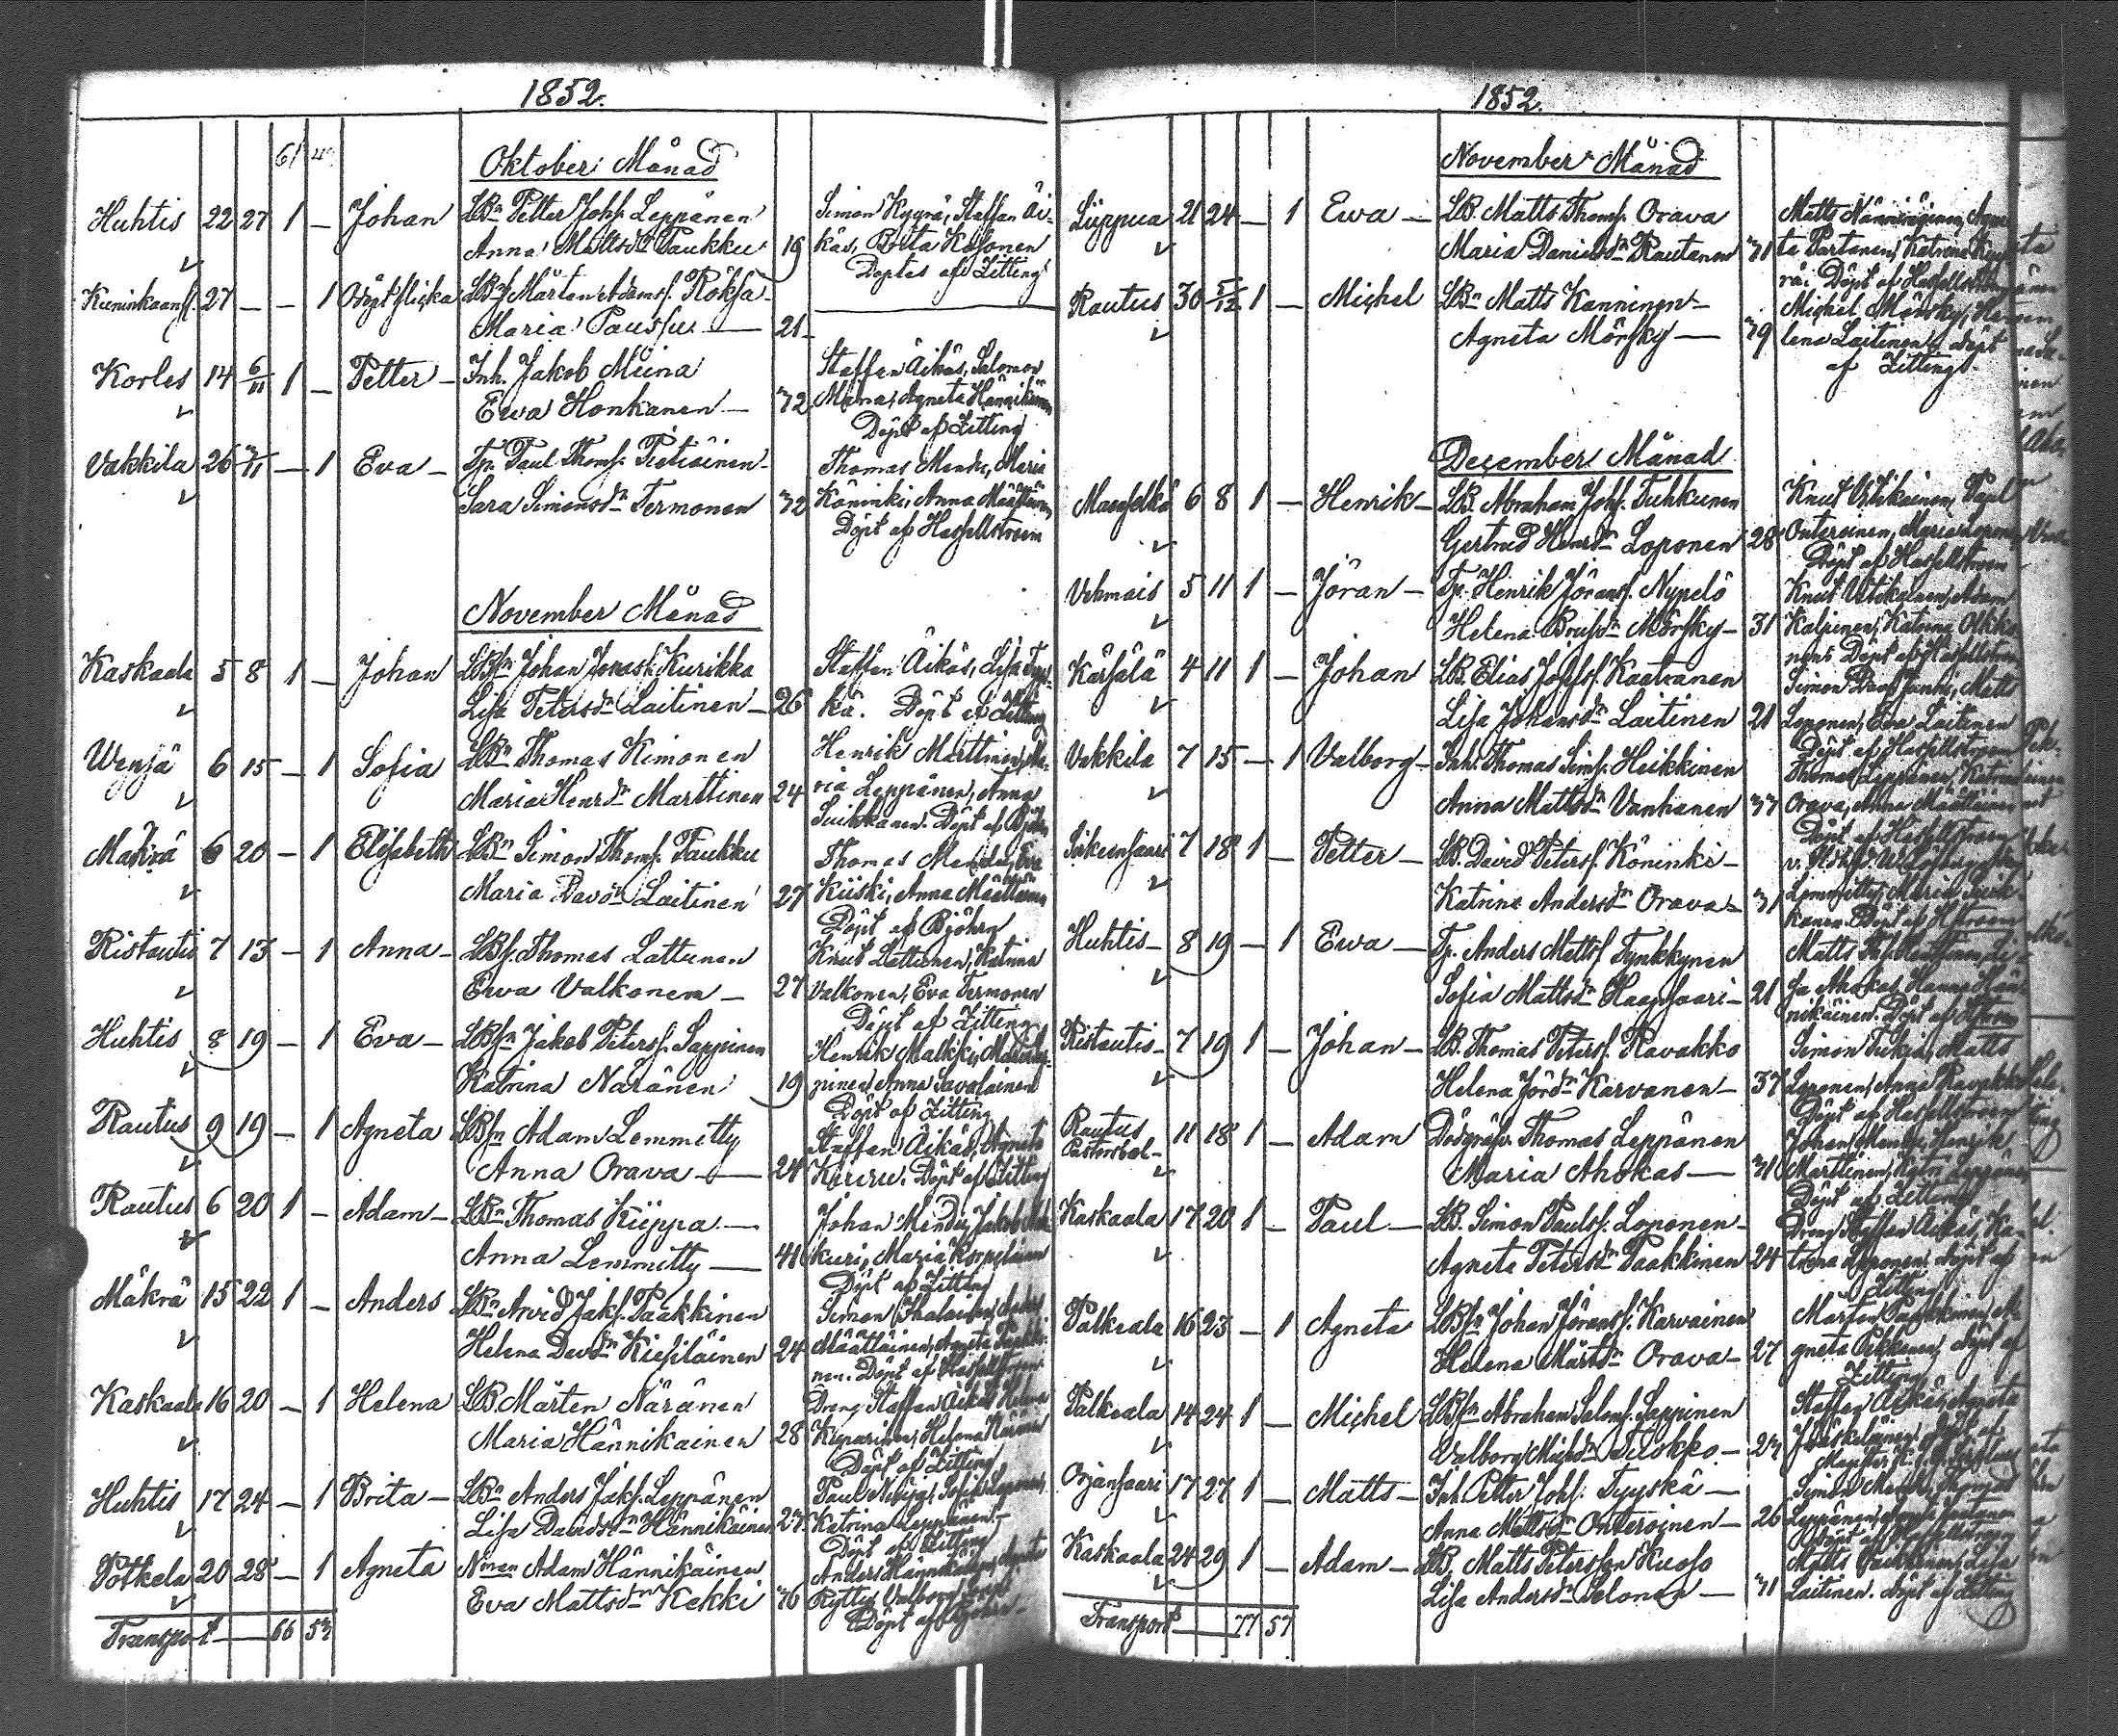 1852.
61
Oktober Månad
Huhtis 22 27 1 — Johan LBn Petter Johs. Leppänen
Anna Mattsdr Paukku 19
Simon Kÿgrä, Staffan Äi-
käs, Brita Kosonen
Döptes af Zitting
27 — — 1 Odöpt flicka LBsn Mårten Adamss. Röksa
Maria Paussu — 21
Korles 14 6/11 1 — Petter — Inh. Jakob Miina
Ewa Honkanen — 32
Staffan Äikäs, Salomon
Miina, Agneta Hännikäinen
Döpt af Zitting
Vakkila 26 7/11 — 1 Eva — Tp. Paul Thoms. Pietiäinen
Sara Simonsdr Termonen 32
Thomas Mendu, Maria
Köninki, Anna Määttänen
Döpt af Hassellstroem
November Månad
Kaskaala 5 8 1 — Johan LBsn Johan Jonass. Kurikka
Lisa Petersdr Laitinen — 26
Staffan Äikäs, Lisa
kä. Döpt af Zitting
Wenjä 6 15 — 1 Sofia LBn Thomas Kimonen
Maria Henrdr Marttinen 24
Henrik Marttinen, Ma-
ria Leppänen, Anna
Suikkanen. Döpt af Björn
Mäkrä 6 20 — 1 Elisabeth LBn Simon Thoms. Paukku
Maria Davdr Laitinen 27
Thomas Mendu, Eva
Kiiski, Anna Määttänen
Döpt af Björhn
Ristautis 7 13 — 1 Anna — LBs. Thomas Lattunen
Ewa Valkonen — 27
Knut Lattunen, Katrina
Valkonen, Eva Termonen
Döpt af Zitting
Huhtis 8 19 — 1 Eva — LBsn Jakob Peters. Lappinen
Katrina Näränen 19
Henrik Malkki, Maria
pinen, Anna Savolainen
Döpt af Zitting
Rautus 9 19 — 1 Agneta LBsn Adam Lemmitty
Anna Orava — 24
Staffan Äikäs, Agneta
Kiuru. Döpt af Zitting
Rautus 6 20 1 — Adam — LBn Thomas Kiippa —
Anna Lemmitty — 41
Johan Mendu, Jakob
kuri, Maria Korpelainen
Döpt af Zitting
Mäkrä 15 22 1 — Anders LBn Arvid Jaks. Paakkinen
Helena Davdr Kiesiläinen 24
Simon Ihalainen, Anders
Määttäinen, Agneta Paakki-
nen. Döpt af Hassellstroem
Kaskaala 16 20 — 1 Helena LB. Mårten Näränen
Maria Hännikäinen 28
Dreng Staffan Äikäs, Helena
Kiparinen, Helena Näränen
Döpt af Zitting
Huhtis 17 24 — 1 Brita — LBn Anders Jaks. Leppänen
Lisa Davidsdr Hännikäinen 27
Paul Nuija, Sofia Loponen,
Katrina Leppänen
Döpt af Zitting
Potkela 20 28 — 1 Agneta Nman Adam Hännikäinen
Eva Mattsdr Kekki 36
Anders Hännikäinen, Agneta
Ryttö, Valborg
Döpt af Björhn
Transport — 66 53
1852.
November Månad
Liippua 21 24 — 1 Ewa — LB. Matts Thoms. Orava
Maria Danielsdr Rautanen 31
Matts Hännikäinen, Agne-
ta Partanen, Katrina
rä. Döpt af Hassellstroem
Rautus 30 5/12 1 — Michel LBn Matts Kanninen —
Agneta Mörsky — 39
Michel Mörsky, He-
lena Laitinen, döpt
af Zitting.
December Månad
Maanselkä 6 8 1 — Henrik — LB. Abraham Johs. Tuhkunen
Gertrud Henrdr Loponen 28
Knut Ustikainen, Paul
Onteroinen, Maria Loponen
Döpt af Hassellstroem
Vehmais 5 11 1 — Jöran — Tp. Henrik Jöranss. Nypelö
Helena Brusdr Mörsky — 31
Knut Ustikainen, Adam
Kaljunen, Katrina Olkko-
nen. Döpt af Hassellstroem
Kärsälä 4 11 1 — Johan LB. Elias Josefs. Kaatranen
Lisa Johansdr Laitinen 21
Simon Davs Junni, Matts
Loponen, Eva Laitinen
Döpt af Hassellstroem
Vakkila 7 15 — 1 Valborg — Inh. Thomas Sims. Heikkinen
Anna Mattsdr Vanhanen 37
Thomas Leppänen, Katrina
Orava, Anna Määttäinen
Döpt af Hassellstroem
7 18 1 — Petter — LB. David Peters. Köninki —
Katrina Andersdr Orava — 31
Lemmitty, Maria Suik-
kanen. Döpt af Hstroem
Huhtis — 8 19 — 1 Ewa — Tp. Anders Matts. Tynkkynen
Sofia Mattsdr Haapsaari — 21
sa Ahokas, Hanna Hän-
nikäinen. Döpt af Hstroem
Ristautis — 7 19 1 — Johan — LB. Thomas Peters. Ravakko
Helena Jördr Karvanen — 37
Simon Tukia, Matts
Loponen, Anna Ravakko
Döpt af Hassellstroem
Rautus
Pastorsbol — 11 18 1 — Adam Dödgräfv. Thomas Leppänen
Maria Ahokas — 31
Johan Mendu, Henrik
Marttinen, Katri Leppänen
Döpt af Zitting
Kaskaala 17 20 1 — Paul — LB. Simon Pauls. Loponen —
Agneta Petersdr Paakkinen 24
Dreng Staffan Äikäs, Ka-
trina Loponen. döpt af
Zitting
Palkeala 16 23 — 1 Agneta LBsn Johan Jöranss. Karvainen
Helena Mårtsdr Orava — 27
Mårten Paukkunen, A-
gneta Pekkanen, döpt af
Zitting
Palkeala 14 24 1 — Michel LBsn Abraham Saloms. Lappinen
Valborg Michsdr Tilokko — 27
Staffan Äikäs, Agneta
Jääskeläinen. döpt af
Orjansaari 17 27 1 — Matts — Inh. Petter Johs. Tyyskä —
Anna Mattsdr Onteroinen — 26
Simon Mendu, Thomas
Leppänen,
Döpt af Hassellstroem
Kaskaala 24 29 1 — Adam — LB. Matts Petersson Kuoso
Lisa Andersdr Pelonen — 31
Matts Paukkunen, Lisa
Laitinen. döpt af Zitting
Transport — 77 57